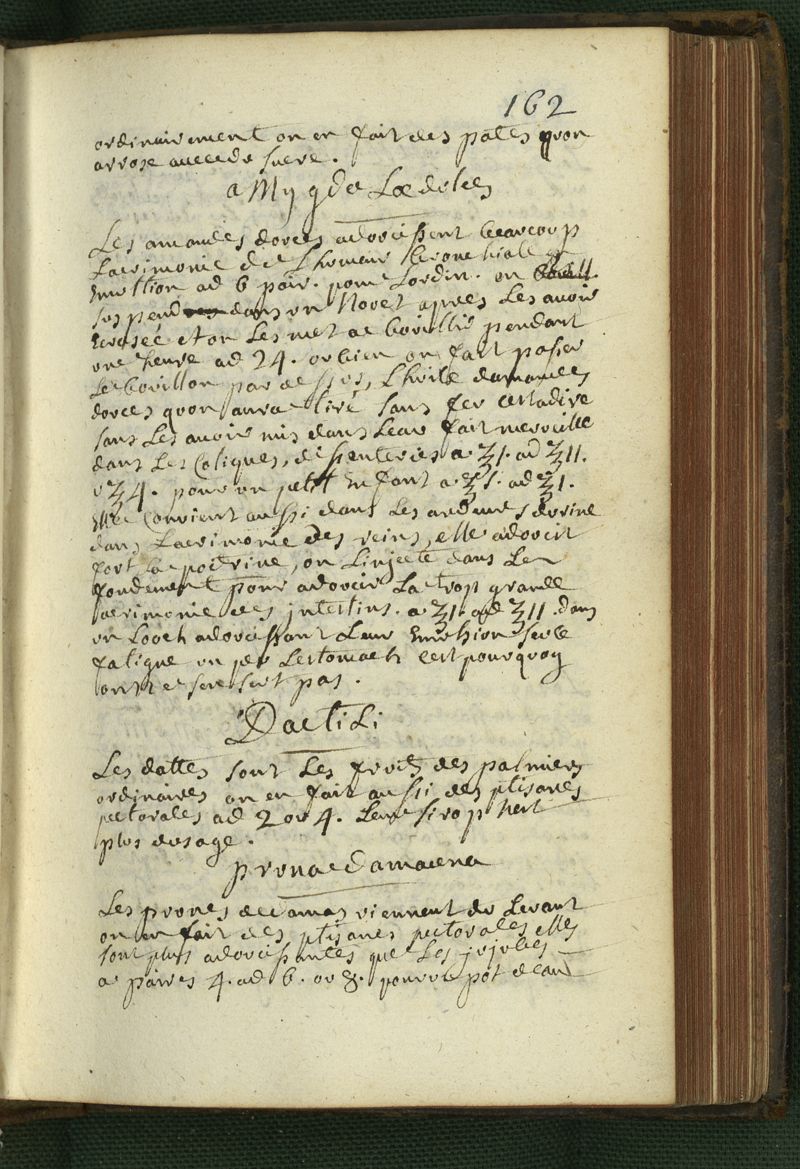 162
ordinairement on en fait des pates qvon
arrose avec dv svcre.
amygdalæ dvlces
Les amandes dovces adovcissent beavcovp
Lacrimonie de Lhvmevr bronchiale
Emvltion ad 6 pair. povr Lordin. on
svspend dans vn Novet apres Les avoir
Ecrasée et on Les met a bovillir pendant
vne hevre ad 24. ov bien on fait passer
Le bovillon par dessvs, Lhvile damandes
dovces qvon avra tiré sans fev cest adire
sans Les avoir mis dans Leav fait merveille
dans Les Coliqves, dissenteries a ʒ1. ad ʒ11.
ov ʒ4. povr vn petit Enfant a ʒs. ad ʒ1.
Elle Convient avssi dans Les ardevrs dvrine
dans Lacrimonie des reins, elle adovcit
fort La poitrine, on Linjecte dans Le
fondement povr adovcir La trop grande
acrimonie des jntestins. a ʒ1. ad ʒ11. dans
vn Looch adovcissant Levr Emvlsion sevle
fatigve vn pev Lestomach cest povrqvoy
on ne sen sert pas.
Dactili
Les dattes sont Les frvits des palmiers
ordinaires on en fait avssi des ptisanes
pectorales ad 2 ov 4. Levr sirop nest
plvs dvsage.
prvna damacena
Les prvnes de damas viennent dv Levant
on en fait des ptisanes pectorales elles
sont plvs adovcissantes qve Les jvjvbes
a paires 4. ad 6. ov 8. povr vn pot deav